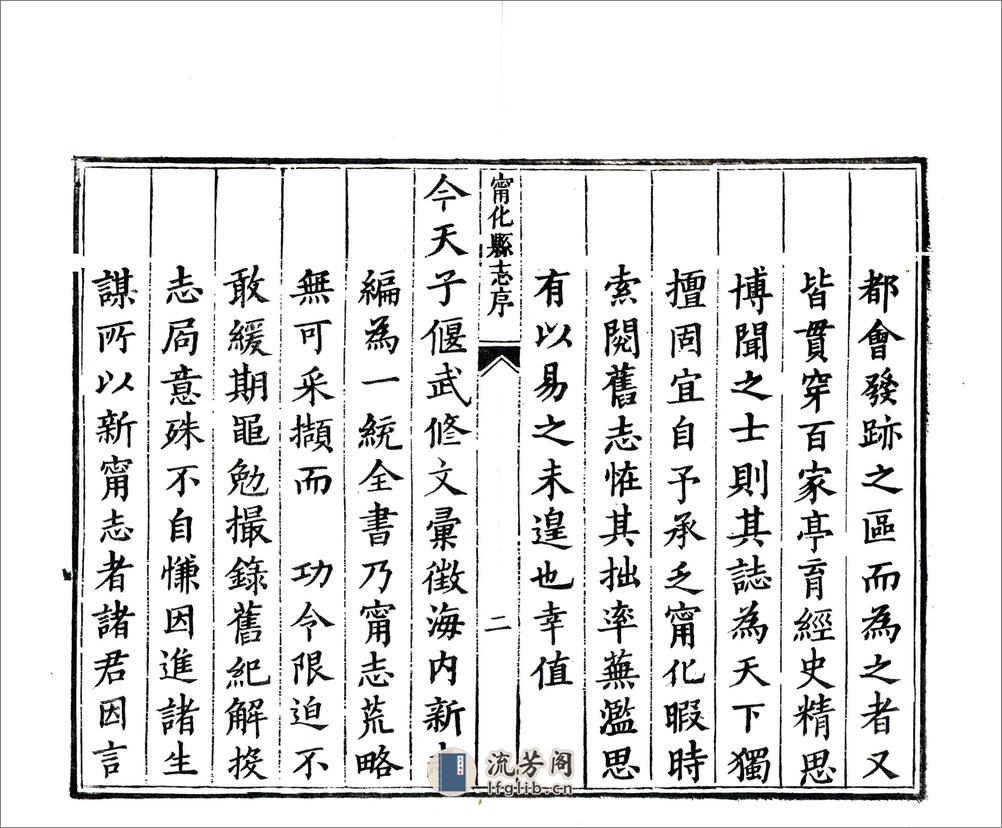 都會發跡之區而為之者又
皆貫穿百家亭育經史精思
博聞之士則其誌為天下獨
擅固宜自予承乏甯化暇時
索閱舊志恠其拙率蕪濫思
有以易之未遑也幸值
甯化縣志序
二
今天子偃武修文彙徵海內新
編為一統全書乃甯志荒略
無可采擷而 功令限迫不
敢緩期黽勉撮錄舊紀解投
志局意殊不自慊因進諸生
謀所以新甯志者諸君因言
流芳阁
lfglib.cn